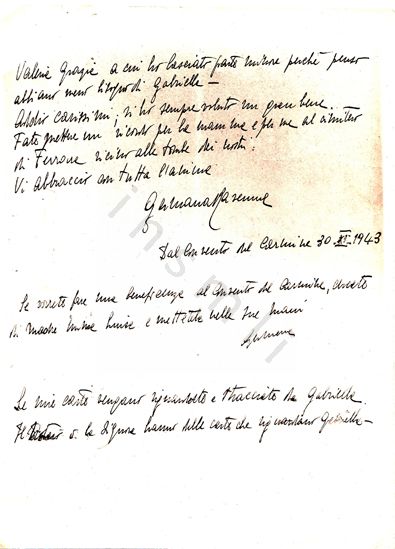 Valeria Grazia a cui ho lasciato parte minore perché penso
abbiano meno bisogno di Gabriella –
Addio carissimi, vi ho sempre voluto un gran bene.
Fate mettere un ricordo per la mamma e per me al cimitero
di Ferrara vicino alle tombe dei nostri.
Vi abbraccio con tutta l'anima
Germana Ravenna
Dal Convento del Carmine 30.XI.1943
Se vorrete fare una beneficenza al Convento del Carmine,
di madre e mettetela nelle sue mani
Germana
Le mie carte vengano riguardate e stracciate da Gabriella.
o la Signora hanno delle carte che riguardano Gabriella –
insmli